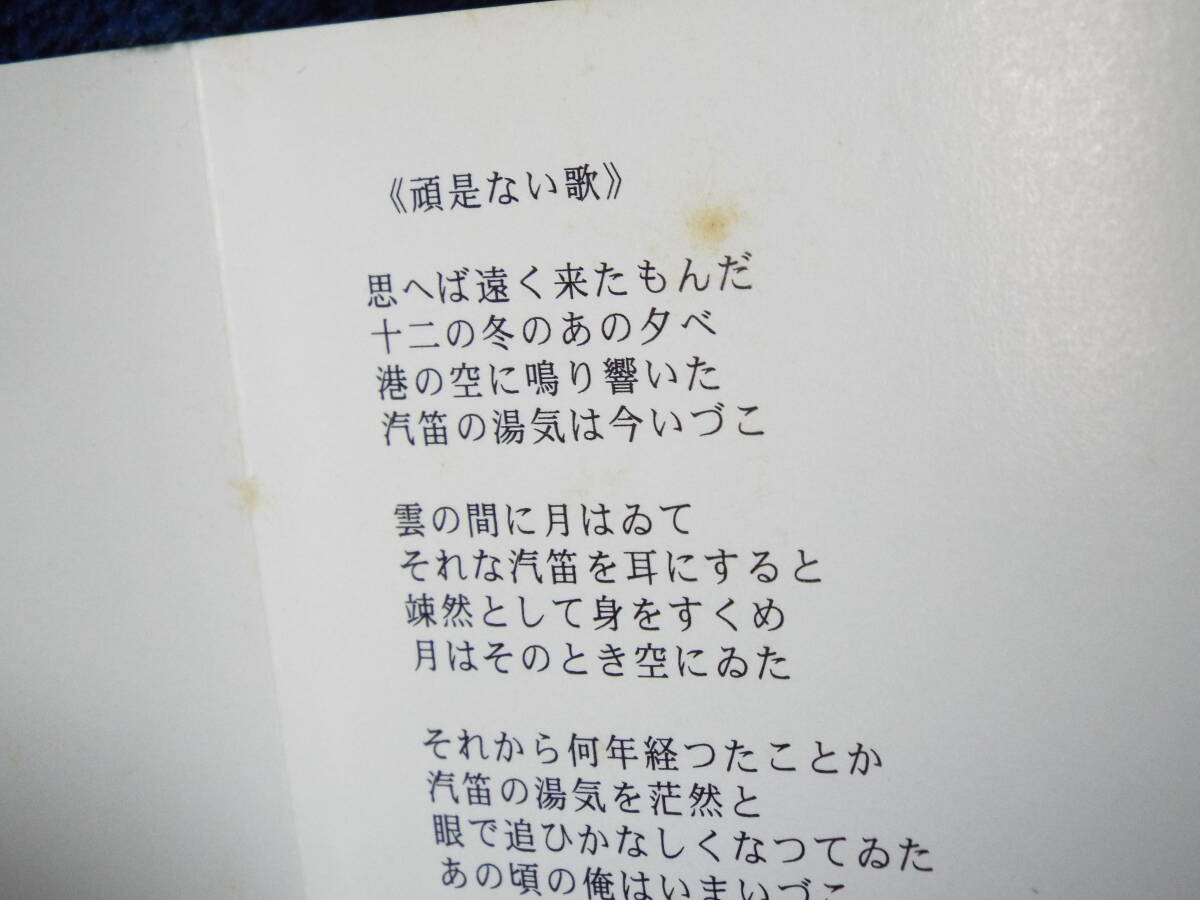 《頑是ない歌》
思へば遠く来たもんだ
十二の冬のあの夕べ
港の空に鳴り響いた
汽笛の湯気は今いづこ
雲の間に月はゐて
それな汽笛を耳にすると
竦然として身をすくめ
月はそのとき空にゐた
それから何年経つたことか
汽笛の湯気を茫然と
眼で追ひかなしくなつてゐた
あの頃の俺はいまいづこ